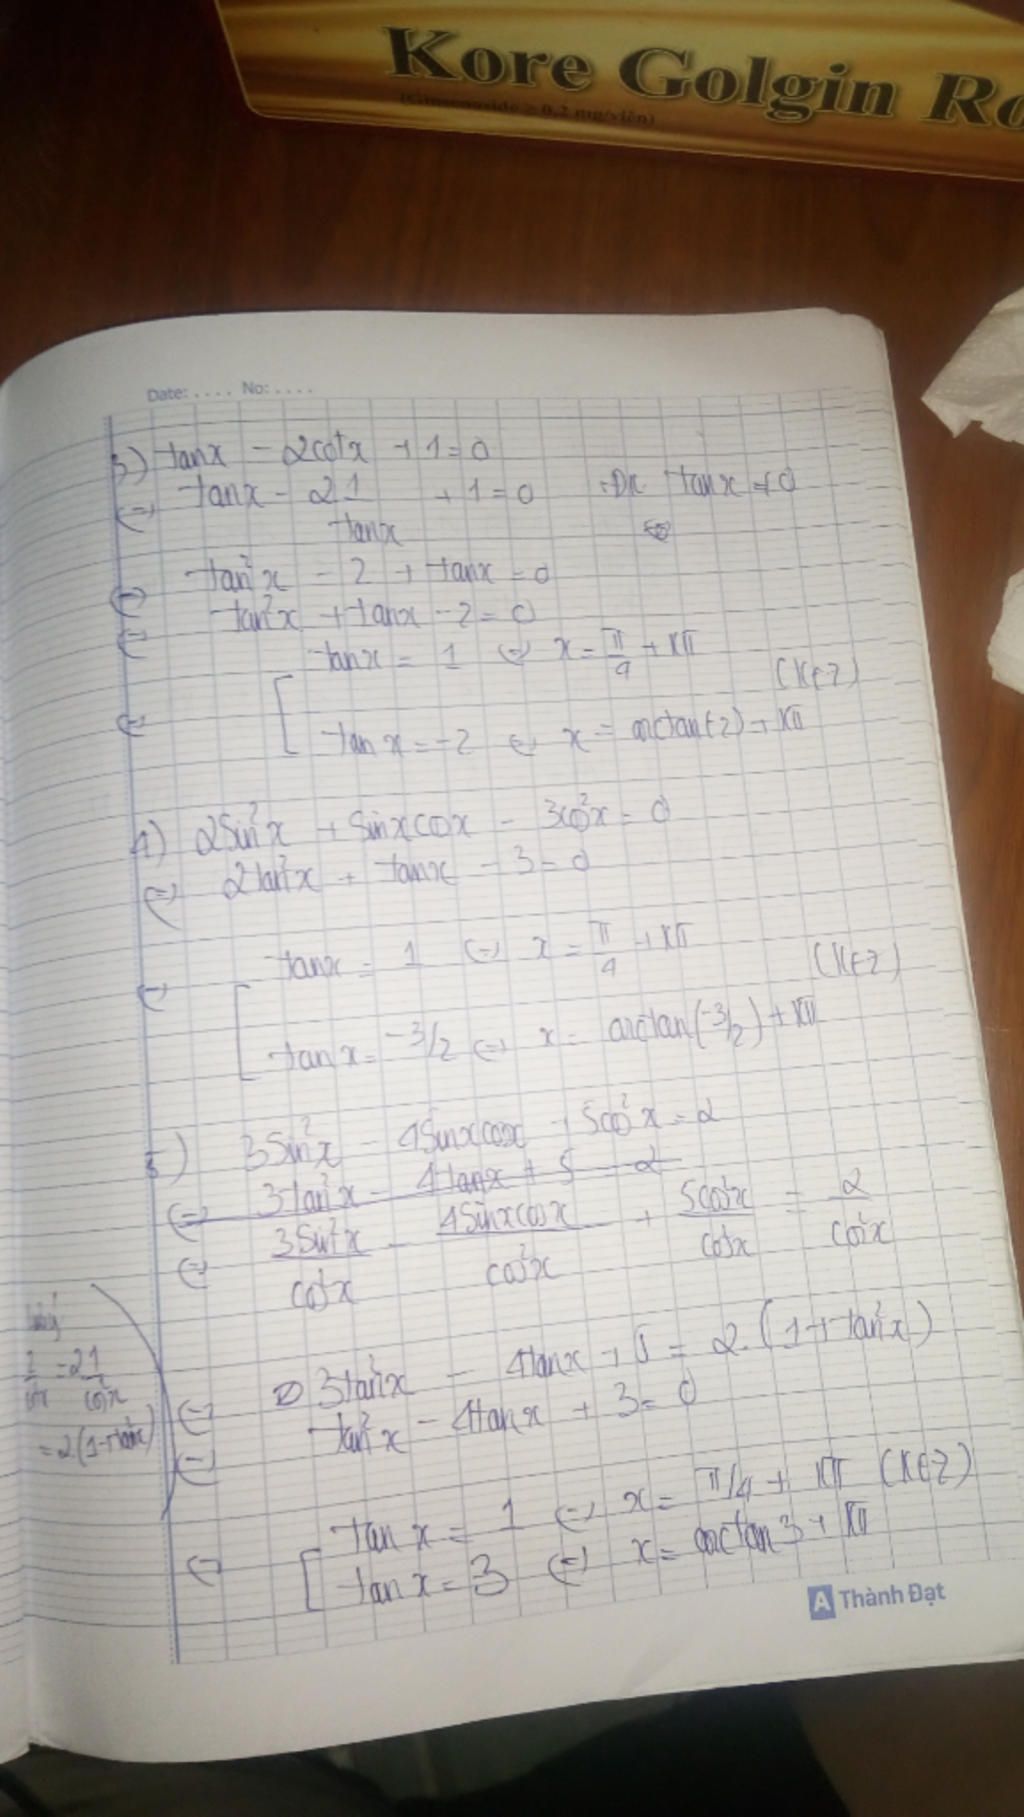 Kore Golgin Ro
(Ginsenoside ≥ 0,2 mg/viên)
Date: .... No: ....
3) tanx - 2cotx + 1 = 0
⇔ tanx - 2 1/tanx + 1 = 0 ĐK tanx ≠ 0
⇔ tan²x - 2 + tanx = 0
⇔ tan²x + tanx - 2 = 0
⇔ [ tanx = 1 ⇔ x = π/4 + Kπ (K∈Z)
tanx = -2 ⇔ x = arctan(-2) + Kπ
4) 2Sin²x + Sinxcosx - 3cos²x = 0
⇔ 2tan²x + tanx - 3 = 0
⇔ [ tanx = 1 ⇔ x = π/4 + Kπ (K∈Z)
tanx = -3/2 ⇔ x = arctan(-3/2) + Kπ
5) 3Sin²x - 4Sinxcosx + 5cos²x = 2
⇔ 3tan²x - 4tanx + 5 = 2
⇔ 3Sin²x/cos²x - 4Sinxcosx/cos²x + 5cos²x/cos²x = 2/cos²x
⇔ 3tan²x - 4tanx + 5 = 2.(1+tan²x)
⇔ tan²x - 4tanx + 3 = 0
⇔ [ tanx = 1 ⇔ x = π/4 + Kπ (K∈Z)
tanx = 3 ⇔ x = arctan3 + Kπ
= 2 1/cos²x
= 2(1+tan²x)
A Thành Đạt